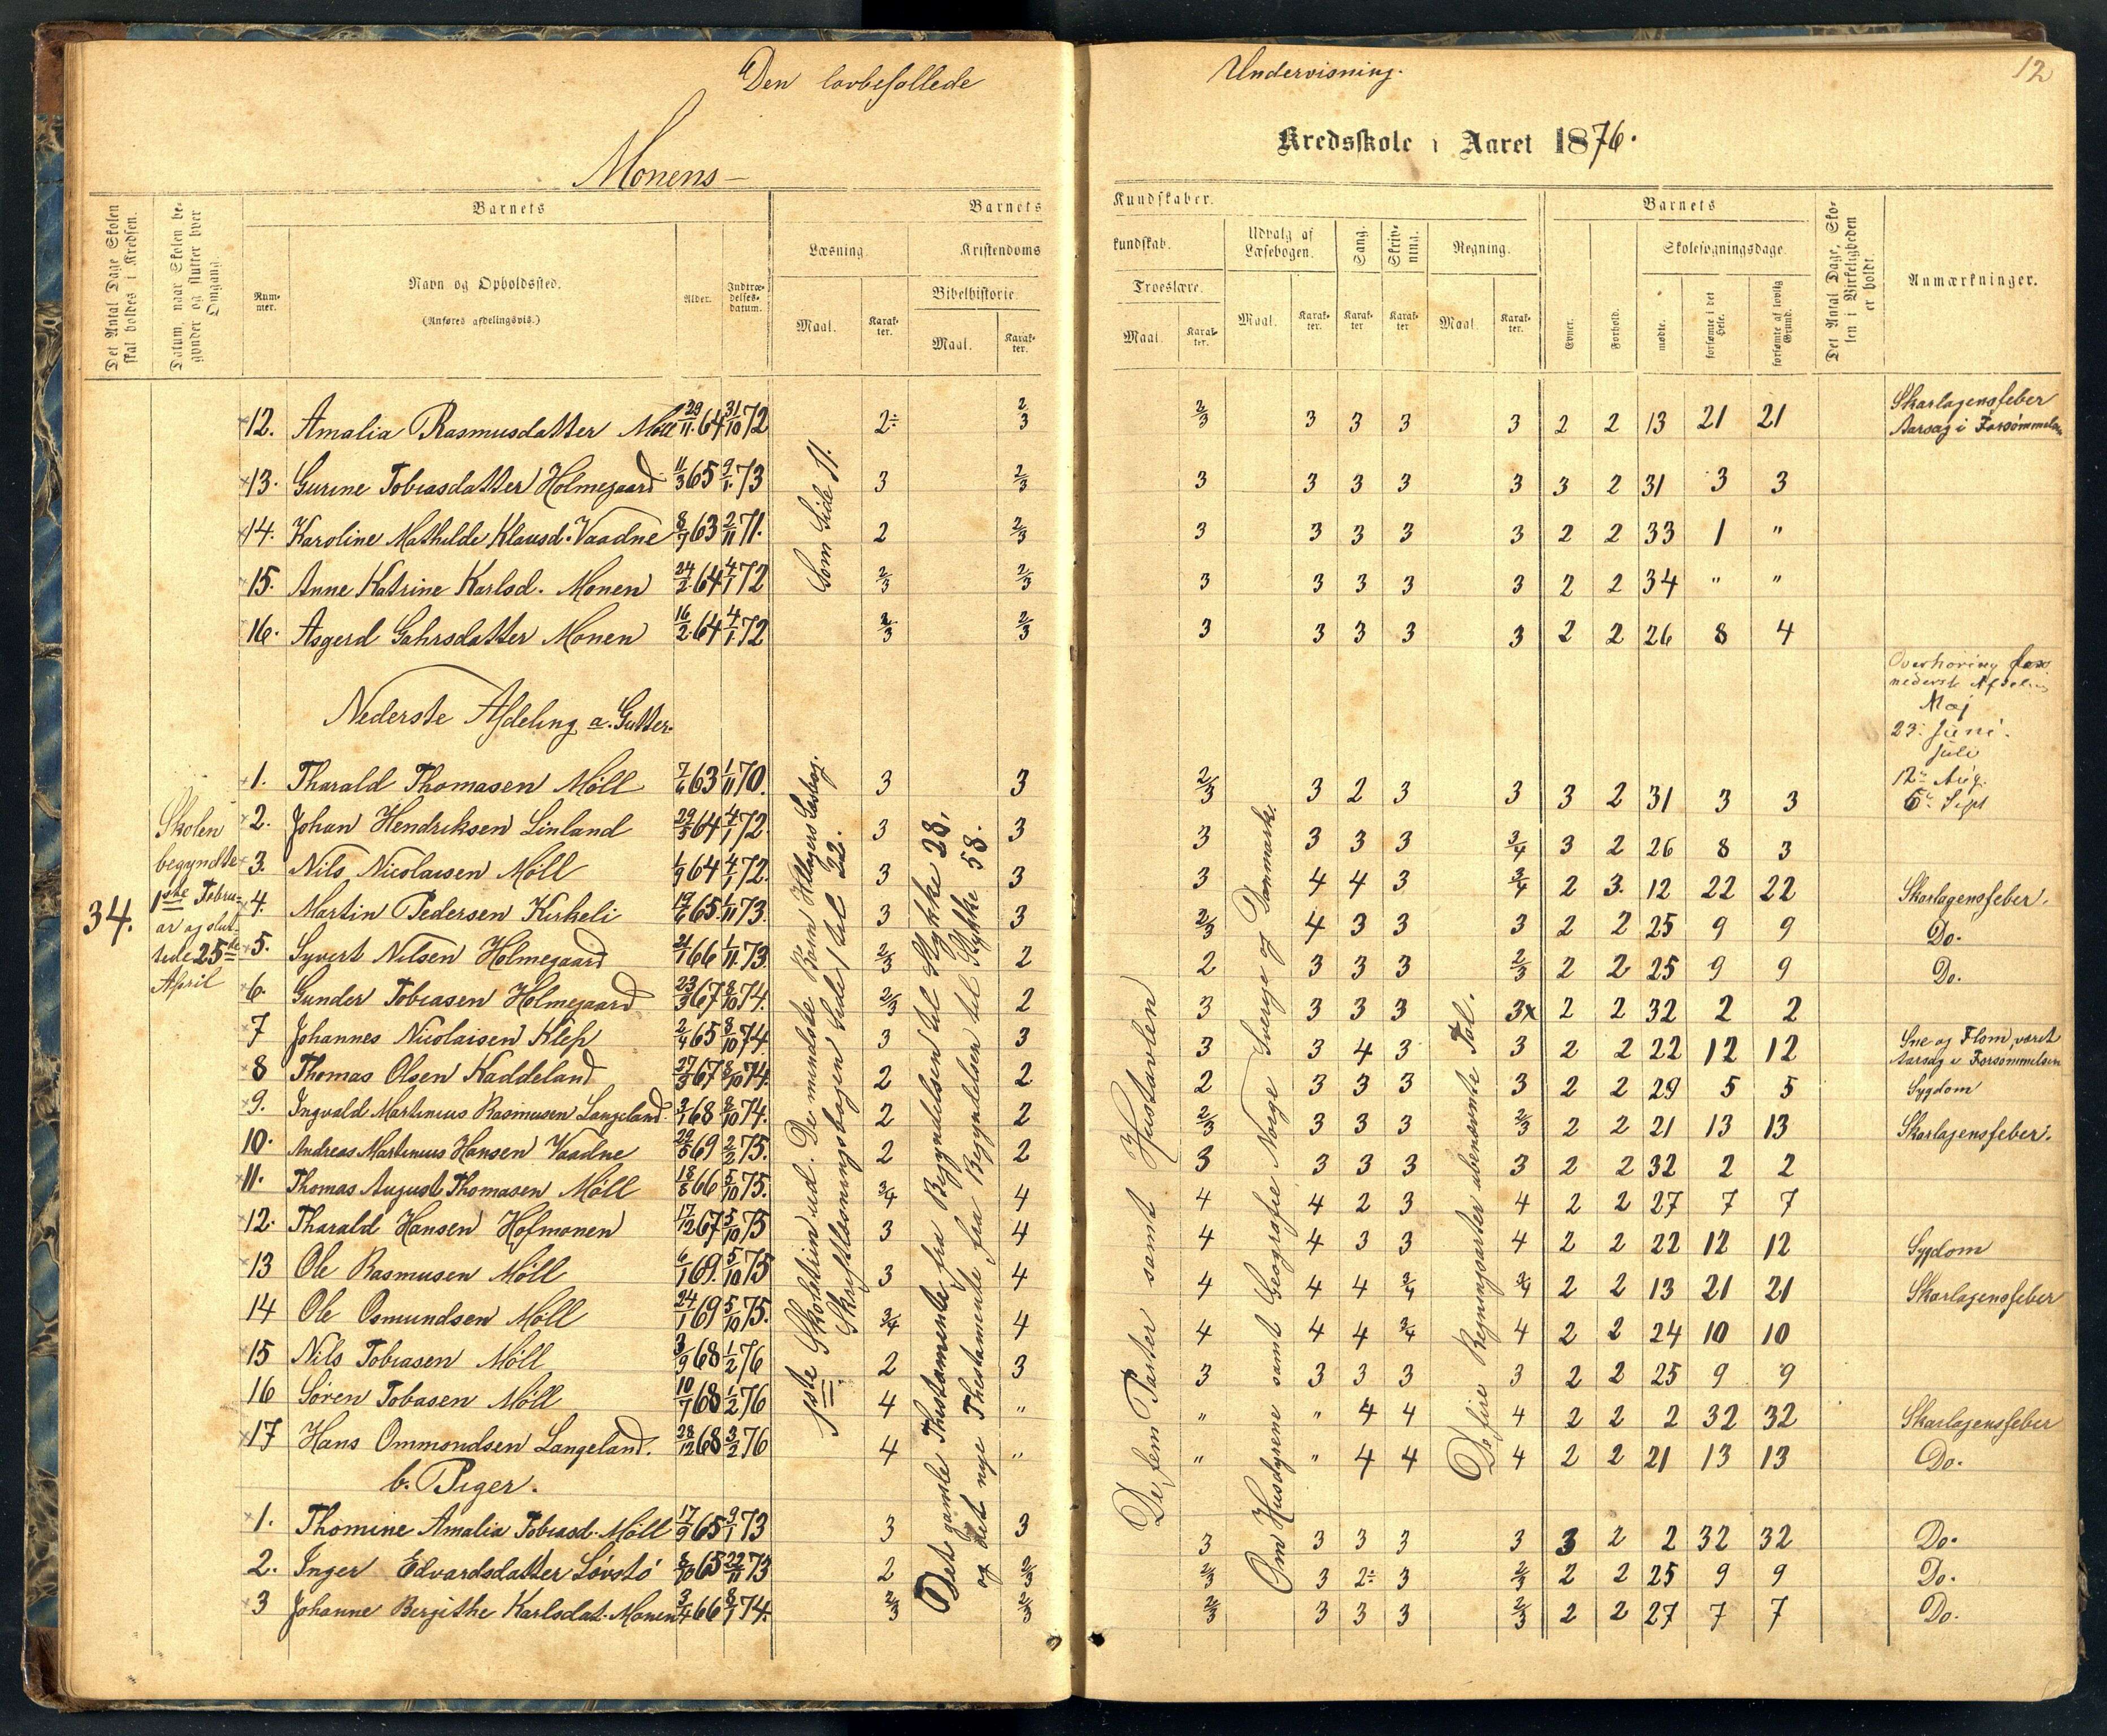 Den lovbefallede Undervisning. 12
Monens Kredsskole i Aaret 1876.
Det Antal Dage Skolen skal holdes i Kredsen.
Datum, naar Skolen begynder og slutter hver Omgang.
Barnets
Nummer.
Navn og Opholdssted.
(Anføres afdelingsvis.)
Alder.
Indtrædelsesdatum.
Barnets Kundskaber.
Læsning.
Maal.
Karakter.
Kristendomskundskab.
Bibelhistorie.
Maal.
Karakter.
Troeslære.
Maal.
Karakter.
Udvalg af Læsebogen.
Maal.
Karakter.
Sang.
Karakter
Skrivning.
Karakter.
Regning.
Maal.
Karakter.
Barnets
Evner.
Forhold.
Skolesøgningsdage.
mødte.
forsømte i det Hele.
forsømte af lovlig Grund.
Det Antal Dage, Skolen i Virkeligheden er holdt.
Anmærkninger.
12. Amalia Rasmusdatter Möll 29/11 64 31/10 72 2÷ 2/3 2/3 3 3 3 3 2 2 13 21 21 Skarlagensfeber Aarsag i Forsömmelsen
13. Gurine Tobiasdatter Holmegaard 11/3 65 9/1 73 3 2/3 3 3 3 3 3 3 2 31 3 3
14. Karoline Mathilde Klausd. Vaadne 8/7 63 2/11 71. 2 2/3 3 3 3 3 3 2 2 33 1 "
15. Anne Katrine Karlsd. Monen 24/2 64 4/1 72 2/3 2/3 3 3 3 3 3 2 2 34 " "
16. Asgerd Gahrsdatter Monen 16/2 64 4/1 72 2/3 2/3 3 3 3 3 3 2 2 26 8 4
Som Side 11.
Nederste Afdeling a. Gutter.
Overhöring
nederste Afdeling
Maj
23. Juni.
Juli
12te Aug.
6te Sept
34.
Skolen
begyndte
1ste Februar
og slut-
tede 25de
April
1. Tharald Thomasen Möll 7/6 63 1/11 70. 3 3 2/3 3 2 3 3 3 2 31 3 3
2. Johan Hendriksen Linland 29/5 64 4/1 72. 3 3 3 3 3 3 3/4 3 2 26 8 3
3. Nils Nicolaisen Möll 1/9 64 4/1 72. 3 3 3 4 4 3 3/4 2 3. 12 22 22 Skarlagensfeber.
4. Martin Pedersen Kirkeli 19/6 65. 1/11 73. 3 3 2/3 4 3 3 3 2 2 25 9 9 Do.
5. Syvert Nilsen Holmegaard 21/1 66 1/11 73. 2/3 2 2 3 3 3 2/3 2 2 25 9 9 Do.
6. Gunder Tobiasen Holmegaard 23/3 67 8/10 74. 2/3 2 3 3 3 3 3x 2 2 32 2 2
7 Johannes Nicolaisen Klep 2/4 65 8/10 74. 3 3 3 3 4 3 3 2 2 22 12 12 Sne og Flom været Aarsag i Forsömmelsen
8 Thomas Olsen Kaddeland 27/3 67 8/10 74. 2 2 2 3 3 3 3 2 2 29 5 5 Sygdom
9. Ingvald Martinius Rasmusen Langeland 3/1 68 8/10 74. 2 2 2/3 3 3 3 2/3 2 2 21 13 13 Skarlagensfeber.
10. Andreas Martinius Hansen Vaadne 29/5 69 2/2 75. 2 2 3 3 3 3 3 2 2 32 2 2
11. Thomas August Thomasen Möll 18/8 66 5/10 75. 3/4 4 4 4 2 3 4 2 2 27 7 7
12. Tharald Hansen Hofmonen 17/12 67 5/10 75 3 4 4 4 3 3 4 2 2 22 12 12 Sygdom
13 Ole Rasmusen Möll 6/1 69. 5/10 75 3 4 4 4 4 3/4 3/4 2 2 13 21 21 Skarlagensfeber
14 Ole Osmundsen Möll 24/1 69 5/10 75. 3/4 4 4 4 4 3/4 4 2 2 24 10 10
15 Nils Tobiasen Möll 3/9 68 1/2 76 2 3 3 3 3 3 3 2 2 25 9 9
16 Sören Tobasen Möll 10/7 68 1/2 76 4 " " " 4 4 4 2 2 2 32 32 Skarlagensfeber
17 Hans Ommondsen Langeland. 28/12 68 3/2 76 4 " " " 4 4 4 2 2 21 13 13 Do.
b. Piger.
1. Thomine Amalia Tobiasd. Möll 17/9 65 9/1 73 3 3 3 3 3 3 3 3 2 2 32 32 Do.
2. Inger Edvardsdatter Lövstö 8/10 65 22/11 73 2 2/3 2/3 3 2÷ 3 2/3 2 2 25 9 9 Do.
3 Johanne Bergithe Karlsdat. Monen 3/4 66 8/1 74. 2/3 2/3 2/3 3 3 3 2/3 2 2 27 7 7 Do.
1ste Skoletrin ud. De mindste Börn
Skriftlæsningsbogen Side 1 til 22.
Det gamle Thestamente fra Begyndelsen til Stykke 28,
og det nye Thestamente fra Begyndelsen til Stykke 58.
De fem Parter samt Hustavlen
Om Husdyrene samt Geografie Norge Sverige og Danmark.
De fire Regningsarter ubenævnte Tal.